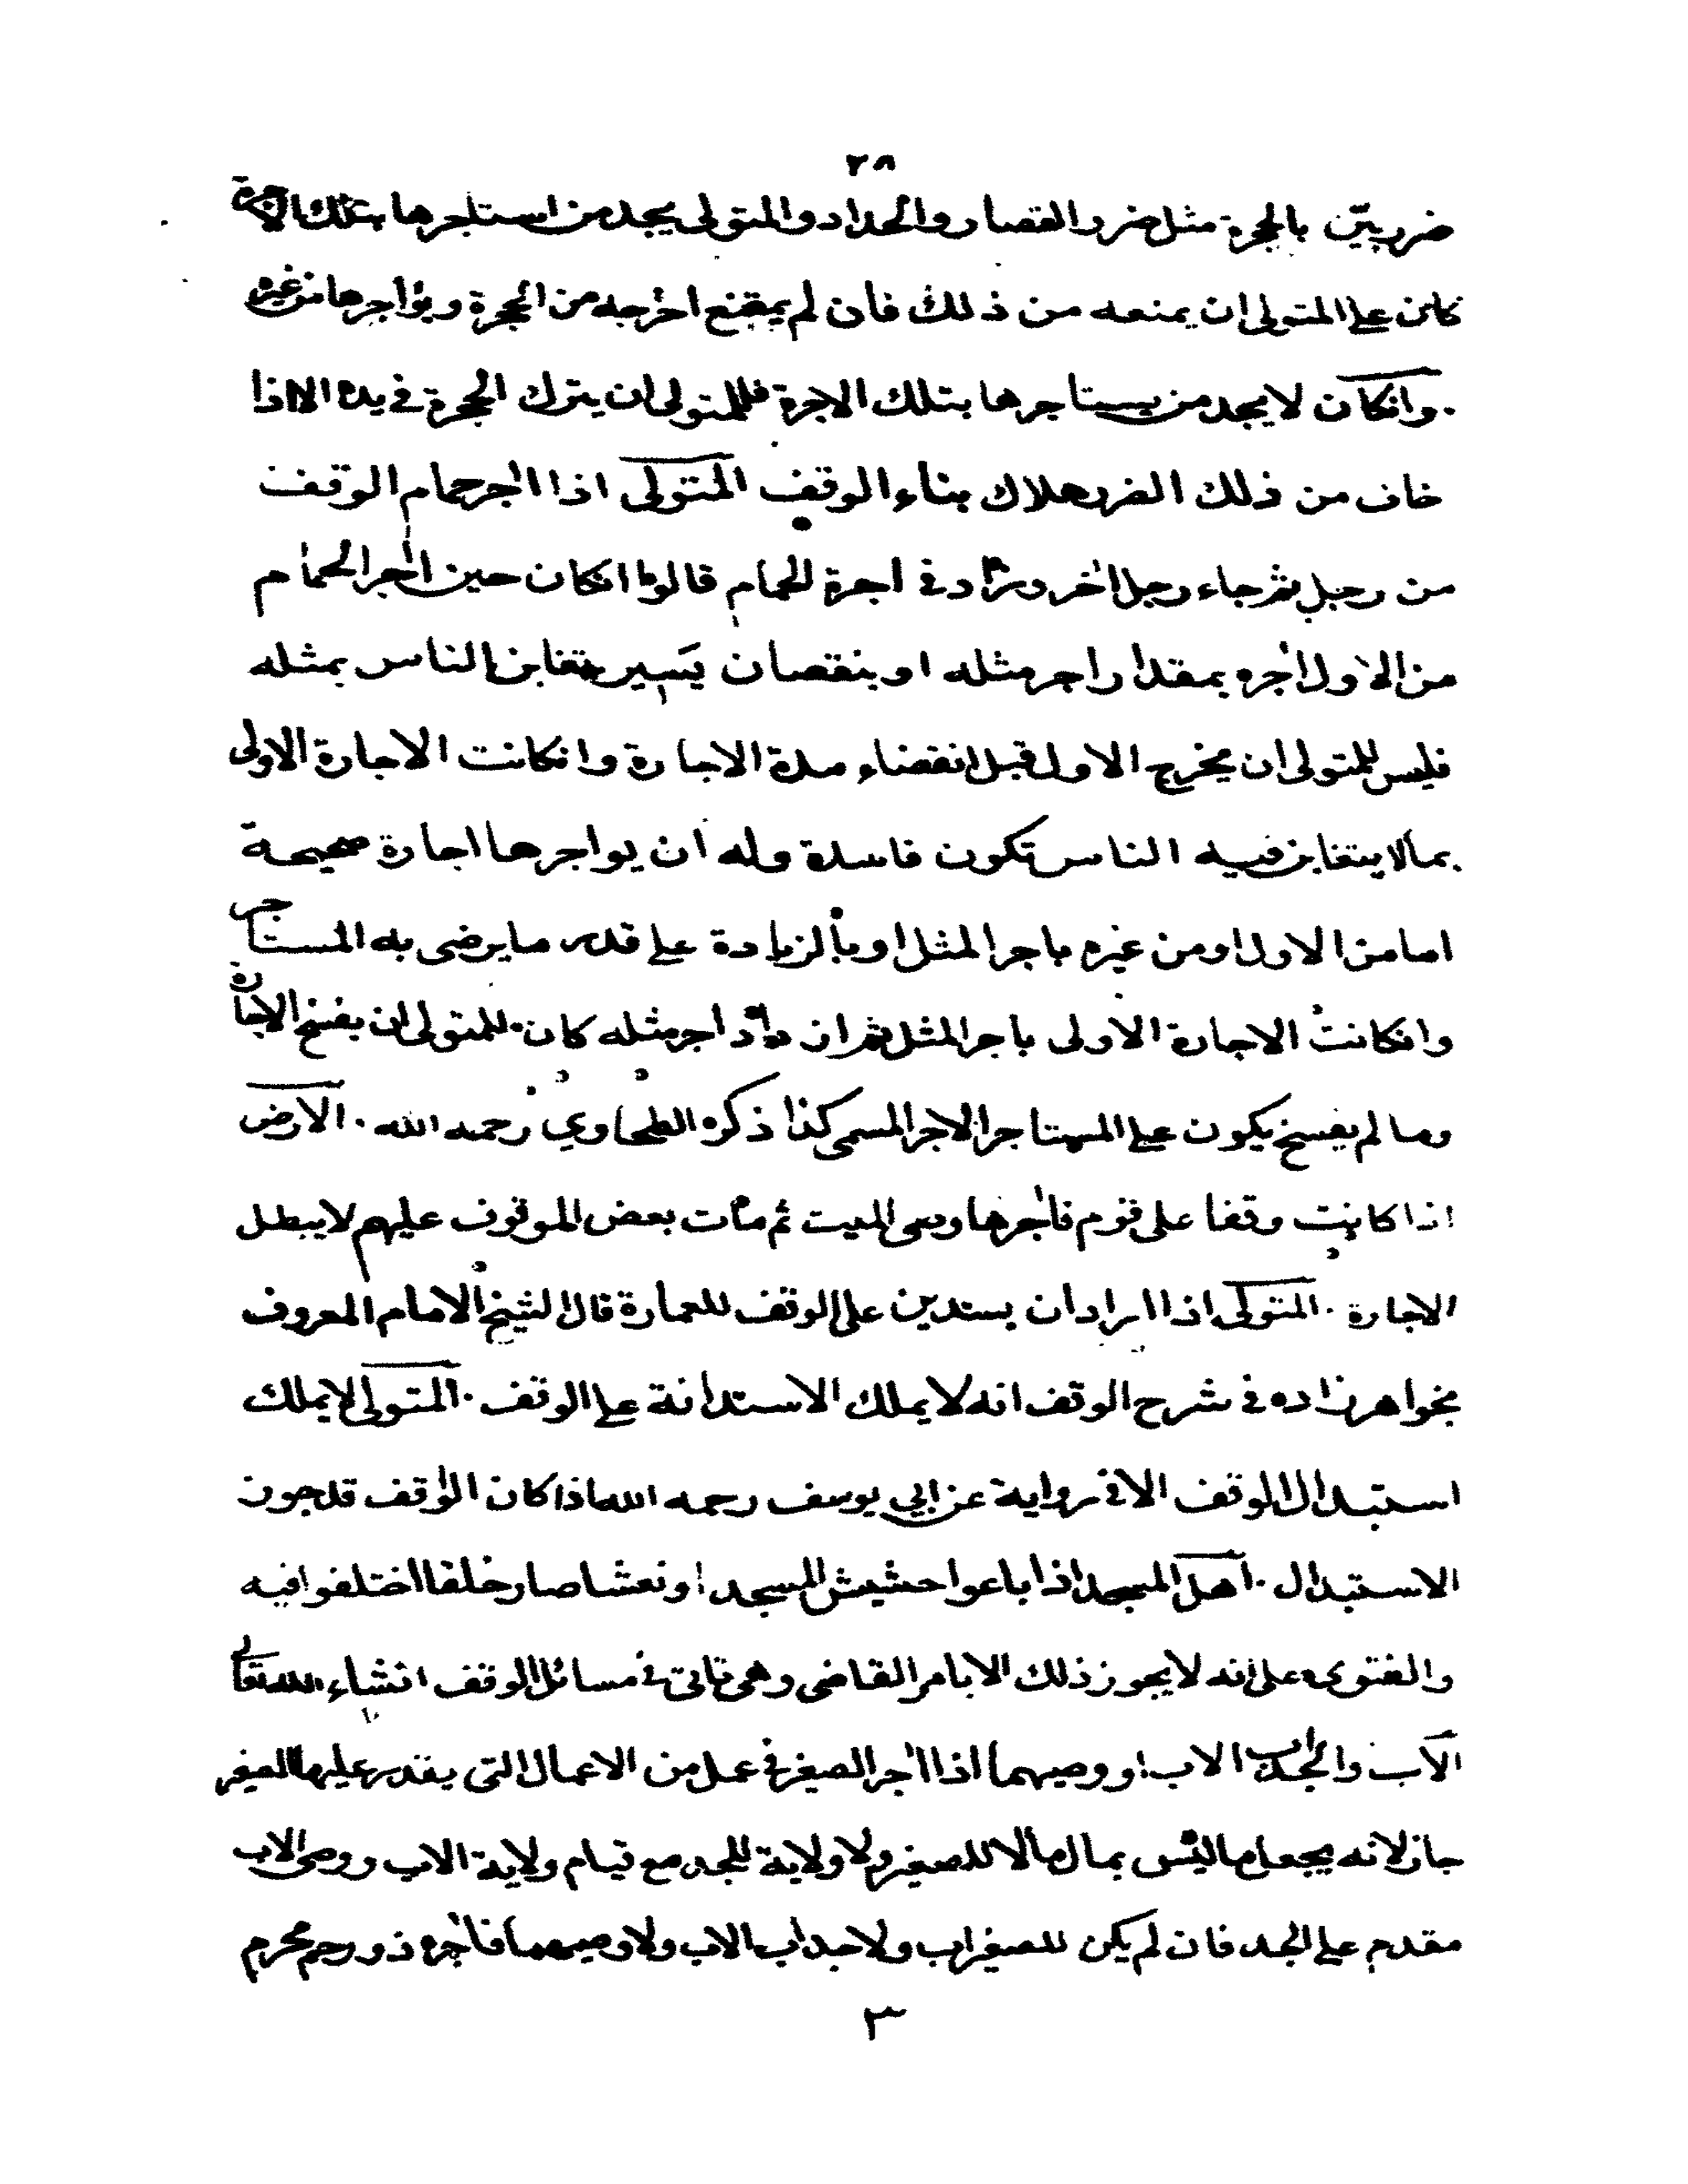 ٢٨
ضرر بيّن بالحجرة مثل ضرر القصار والحداد والمتولى يجد من استاجرها بتلك الاجرة
كان على المتولى ان يمنعه من ذلك فان لم يمتنع اخرجه من الحجرة ويؤاجرها من غيره
وانكان لا يجد من يستاجرها بتلك الاجرة فللمتولى ان يترك الحجرة فى يده الا اذا
خاف من ذلك الضرر هلاك بناء الوقف المتولى اذا اجر حمام الوقف
من رجل ثم جاء رجل اخر وزاد فى اجرة الحمام قالوا انكان حين اجر الحمام
من الاول اجره بمقدار اجر مثله او بنقصان يسير يتغابن الناس بمثله
فليس للمتولى ان يخرج الاول قبل انقضاء مدة الاجارة وانكانت الاجارة الاولى
بما لا يتغابن فيه الناس تكون فاسدة وله ان يواجرها اجارة صحيحة
اما من الاول او من غيره باجر المثل او بالزيادة على قدر ما يرضى به المستاجر
وانكانت الاجارة الاولى باجر المثل ثم ازداد اجر مثله كان للمتولى ان يفسخ الاجارة
وما لم يفسخ يكون على المستاجر الاجر المسمى كذا ذكره الطحاوي رحمه الله. الارض
اذا كانت وقفا على قوم فاجرها وصى الميت ثم مات بعض الموقوف عليهم لا يبطل
الاجارة. المتولى اذا اراد ان يستدين على الوقف للعمارة قال الشيخ الامام المعروف
بخواهرزاده فى شرح الوقف انه لا يملك الاستدانة على الوقف. المتولى لا يملك
استبدال الوقف الا فى رواية عن ابي يوسف رحمه الله اذا كان الوقف قد جوز
الاستبدال. اهل المسجد اذا باعوا حشيش المسجد او نعشا صار خلقا اختلفوا فيه
والفتوى على انه لا يجوز ذلك الا بامر القاضى وهى تاتى فى مسائل الوقف انشاء الله تعالى
الاب والجد اب الاب او وصيهما اذا اجر الصغير فى عمل من الاعمال التى يقدر عليها الصغير
جاز لانه يجعل ما ليس بمال مالا للصغير ولا ولاية للجد مع قيام ولاية الاب ووصى الاب
مقدم على الجد فان لم يكن للصغير اب ولا جد اب الاب ولا وصيهما فاجره ذو رحم محرم
٣